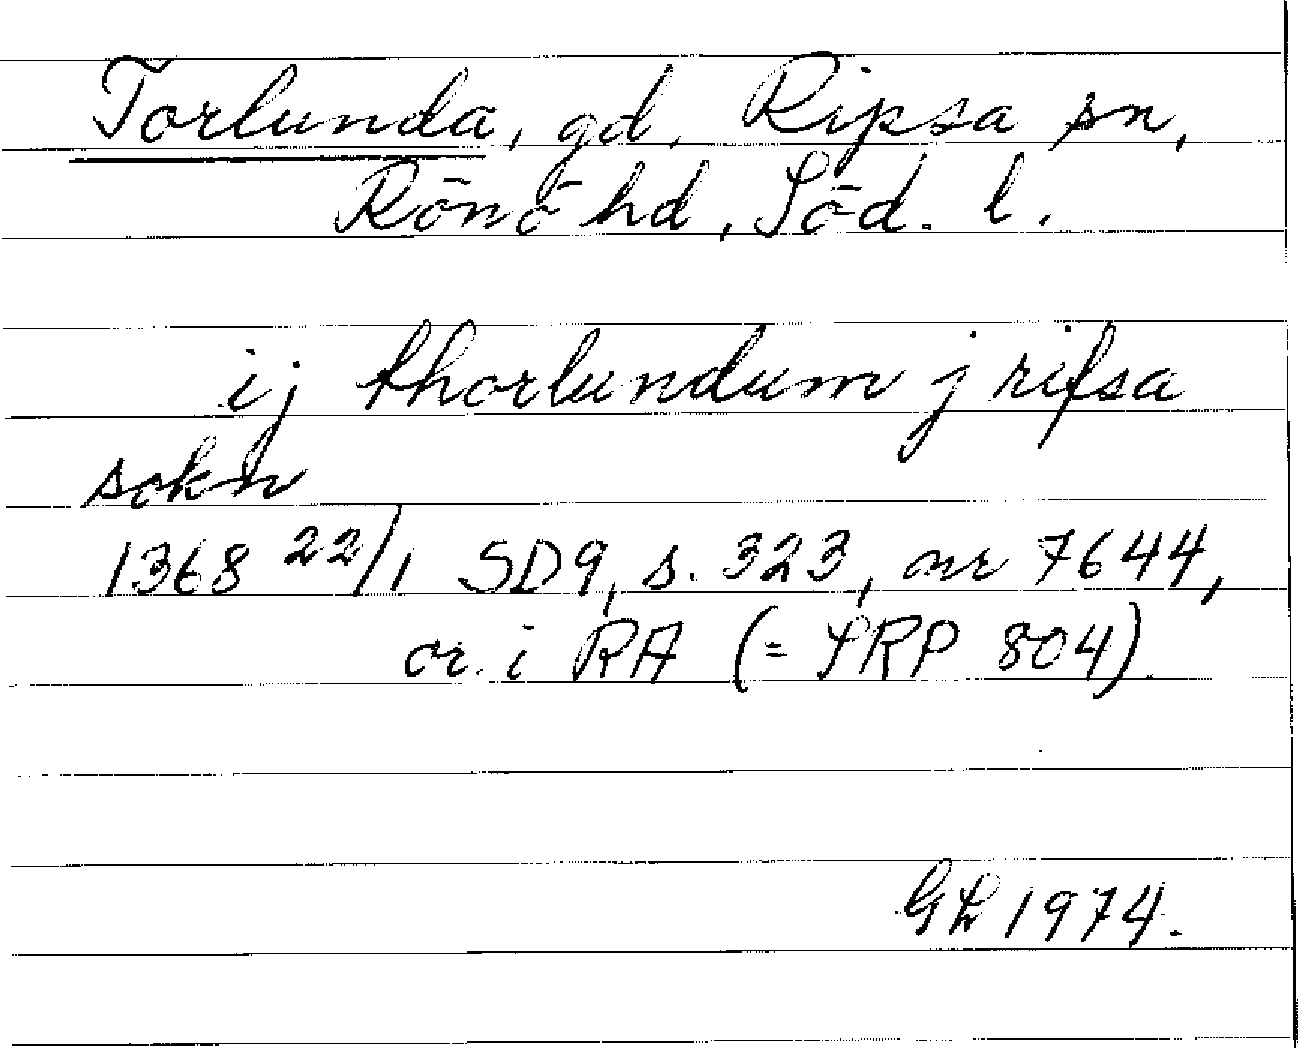 Torlunda, gd, Ripsa sn,
Rönö hd, Söd. l.
ij thorlundum j rifsa
sokn
1368 22/1 SD9, s. 323, nr 7644,
or. i RA (= SRP 804).
GL 1974.